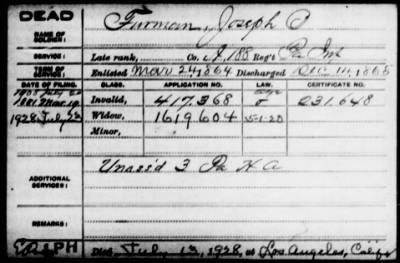 DEAD
NAME OF SOLDIER: Furman, Joseph P
SERVICE: Late rank, Co. I, 188 Reg't Pa Inf
TERM OF SERVICE: Enlisted Mar 24, 1864 Discharged Dec 14, 1865
DATE OF FILING. CLASS. APPLICATION NO. LAW. CERTIFICATE NO.
1881 Mar 19 Invalid, 417.368 231.648
1928 July 23 Widow, 1619604 5-1-20
Minor,
ADDITIONAL SERVICES: Unass'd 3 Pa H A
REMARKS:
Died July 13, 1928, at Los Angeles, Calif